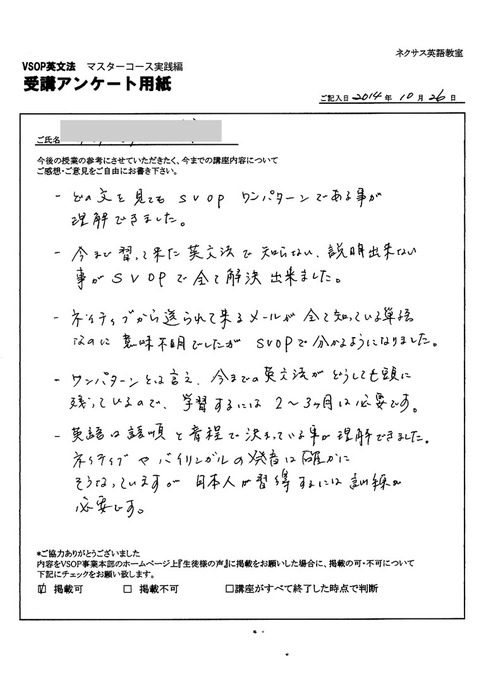 ネクサス英語教室
VSOP英文法 マスターコース実践編
受講アンケート用紙
ご記入日 2014 年 10 月 26 日
ご氏名
今後の授業の参考にさせていただきたく、今までの講座内容について
ご感想・ご意見をご自由にお書き下さい。
- どの文を見ても SVOP ワンパターンである事が
理解できました。
- 今まで習って来た英文法で知らない、説明出来ない
事が SVOPで全て解決出来ました。
- ネイティブから送られて来るメールが全て知っている単語
なのに意味不明でしたが SVOPで分かるようになりました。
- ワンパターンとは言え、今までの英文法がどうしても頭に
残っているので、学習するには 2〜3ヶ月は必要です。
- 英語は語順と音程で決まっている事が理解できました。
ネイティブやバイリンガルの発音は確かに
そうなっていますが 日本人が習得するには訓練が
必要です。
*ご協力ありがとうございました
内容をVSOP事業本部のホームページ上『生徒様の声』に掲載をお願いした場合に、掲載の可・不可について
下記にチェックをお願い致します。
☑ 掲載可 □ 掲載不可 □講座がすべて終了した時点で判断